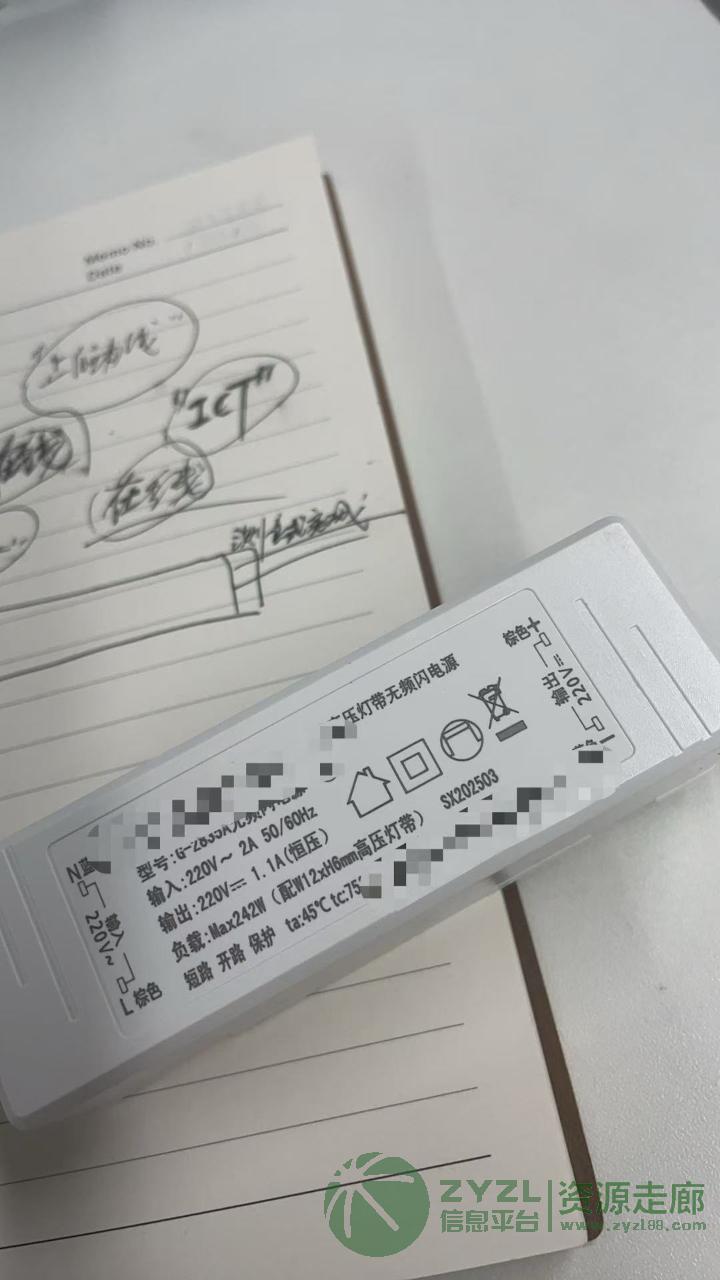 Memo No.
Date
"ICT"
在线
高压灯带无频闪电源
型号:G-2835A无频闪电源
输入:220V～ 2A 50/60Hz
输出:220V⎓ 1.1A(恒压)
负载:Max242W（配W12xH6mm高压灯带）
SX202503
短路 开路 保护 ta:45℃ tc:75
N
输入
220V~
L 棕色
棕色 +
输出
220V⎓
ZYZL 资源走廊
信息平台 www.zyzl88.com